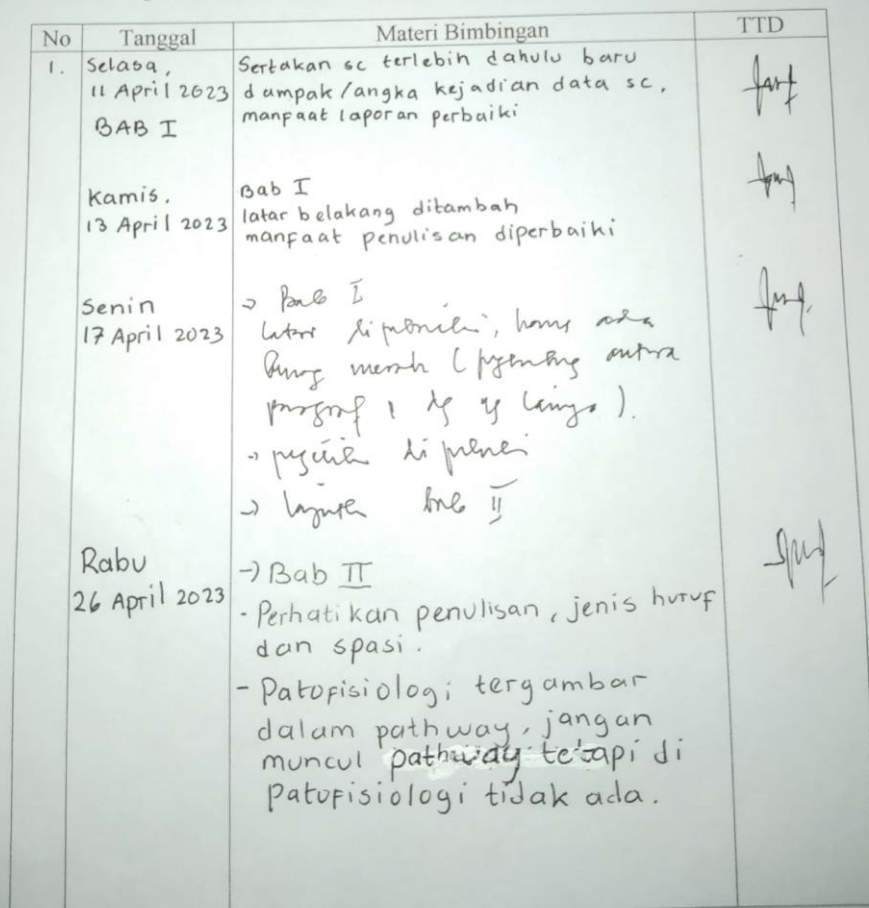 No Tanggal Materi Bimbingan TTD
1. Selasa, Sertakan sc terlebih dahulu baru
11 April 2023 dampak/angka kejadian data sc,
BAB I manfaat laporan perbaiki
Kamis. Bab I
13 April 2023 latar belakang ditambah
manfaat penulisan diperbaiki
Senin → Bab I
17 April 2023 latar diperbaiki, harus ada
benang merah ( antara
paragraf 1 dg yg lainnya ).
→ di
→ lanjutkan bab II
Rabu → Bab II
26 April 2023 - Perhatikan penulisan, jenis huruf
dan spasi.
- Patofisiologi tergambar
dalam pathway, jangan
muncul pathway tetapi di
Patofisiologi tidak ada.